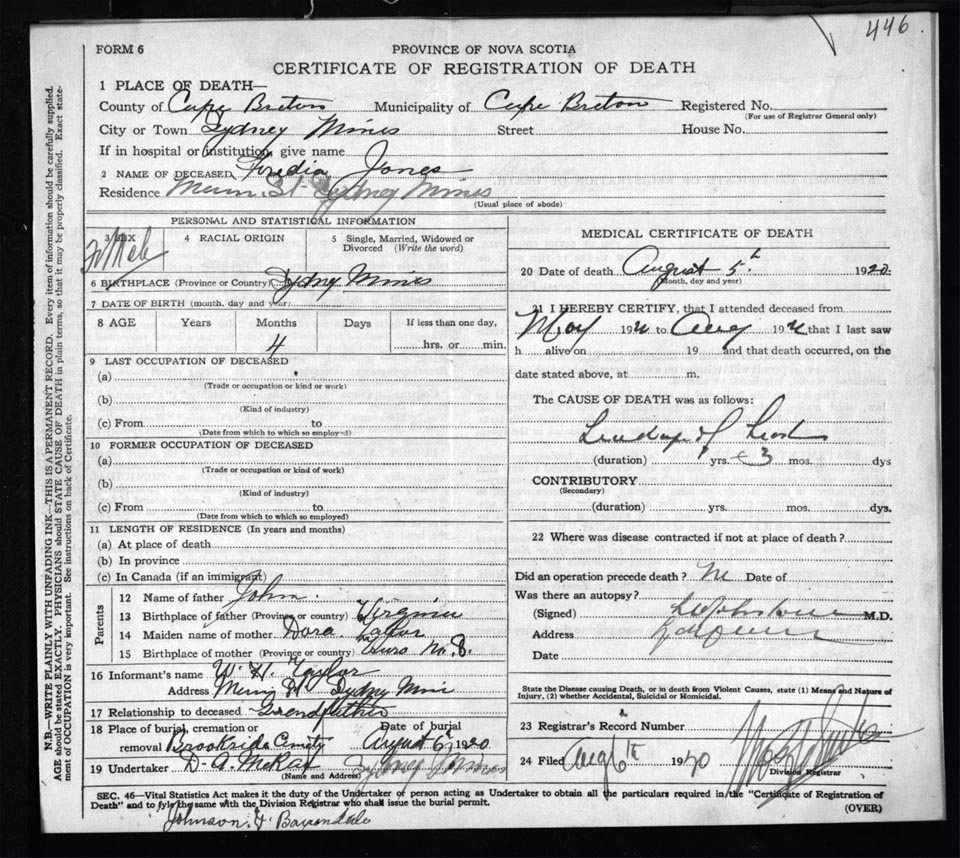 446
FORM 6
PROVINCE OF NOVA SCOTIA
CERTIFICATE OF REGISTRATION OF DEATH
1 PLACE OF DEATH—
County of Cape Breton Municipality of Cape Breton Registered No.
(For use of Registrar General only)
City or Town Sydney Mines Street House No.
If in hospital or institution, give name
2 NAME OF DECEASED Jones
Residence St Sydney Mines
(Usual place of abode)
PERSONAL AND STATISTICAL INFORMATION
3 SEX 4 RACIAL ORIGIN 5 Single, Married, Widowed or Divorced (Write the word)
6 BIRTHPLACE (Province or Country) Sydney Mines
7 DATE OF BIRTH (month, day and year)
8 AGE Years Months Days If less than one day,
4 hrs. or min.
9 LAST OCCUPATION OF DECEASED
(a)
(Trade or occupation or kind or work)
(b)
(Kind of industry)
(c) From to
(Date from which to which so employed)
10 FORMER OCCUPATION OF DECEASED
(a)
(Trade or occupation or kind of work)
(b)
(Kind of industry)
(c) From to
(Date from which to which so employed)
11 LENGTH OF RESIDENCE (In years and months)
(a) At place of death
(b) In province
(c) In Canada (if an immigrant)
Parents
12 Name of father John
13 Birthplace of father (Province or country) Virginia
14 Maiden name of mother Dora
15 Birthplace of mother (Province or country) Truro N.S.
16 Informant's name W. H. Taylor
Address St Sydney Mine
17 Relationship to deceased Grandfather
18 Place of burial, cremation or Date of burial
removal Brookside August 6 1920
19 Undertaker D. A. McRae Sydney Mines
(Name and Address)
MEDICAL CERTIFICATE OF DEATH
20 Date of death August 5th 1920
(Month, day and year)
21 I HEREBY CERTIFY, that I attended deceased from
May 19 to Aug 19 that I last saw
h alive on 19 and that death occurred, on the
date stated above, at m.
The CAUSE OF DEATH was as follows:
(duration) yrs. 3 mos. dys
CONTRIBUTORY
(Secondary)
(duration) yrs. mos. dys.
22 Where was disease contracted if not at place of death?
Did an operation precede death? Date of
Was there an autopsy?
(Signed) M.D.
Address
Date
State the Disease causing Death, or in death from Violent Causes, state (1) Means and Nature of
Injury, (2) whether Accidental, Suicidal or Homicidal.
23 Registrar's Record Number
24 Filed Aug 6th 1920
Division Registrar
SEC. 46—Vital Statistics Act makes it the duty of the Undertaker or person acting as Undertaker to obtain all the particulars required in the "Certificate of Registration of
Death" and to fyle the same with the Division Registrar who shall issue the burial permit.
(OVER)
Johnson &
N.B.—WRITE PLAINLY WITH UNFADING INK—THIS IS A PERMANENT RECORD. Every item of information should be carefully supplied.
AGE should be stated EXACTLY. PHYSICIANS should STATE CAUSE OF DEATH in plain terms, so that it may be properly classified. Exact state-
ment of OCCUPATION is very important. See instructions on back of Certificate.